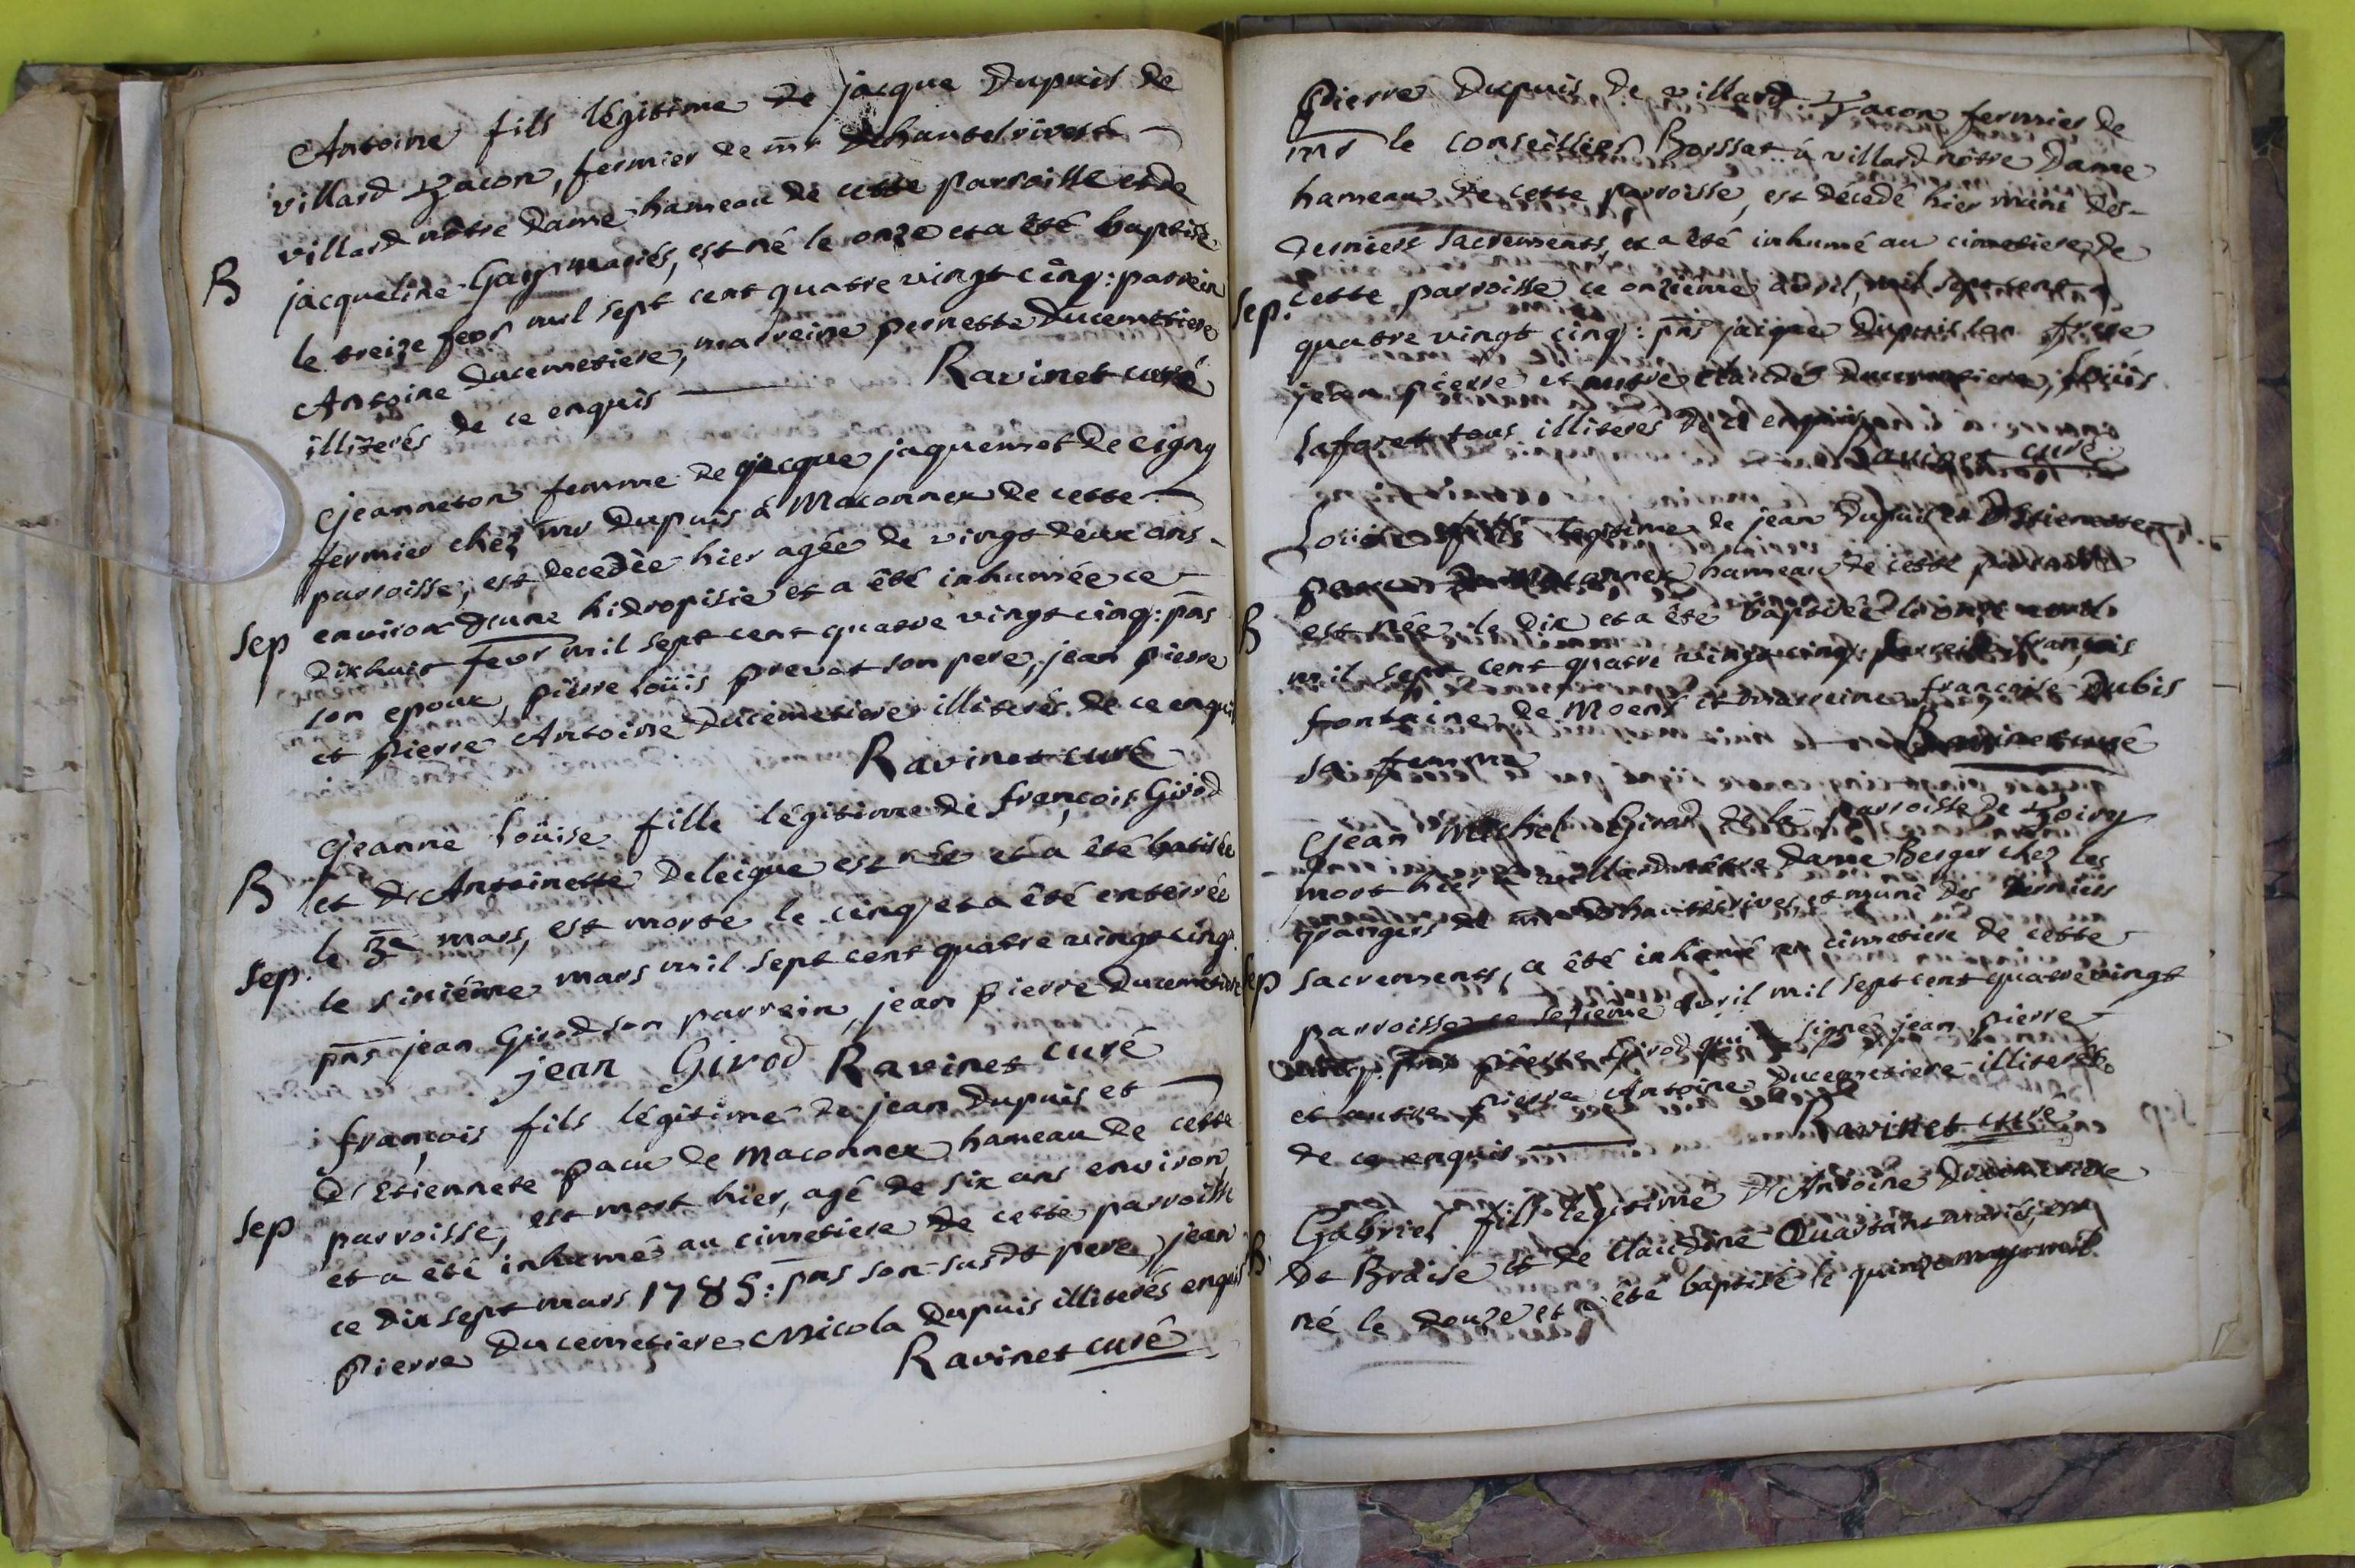 Antoine fils légitime de jacque Dupuis de
villard Tacon, fermier de mr Dehauterives à
villard nôtre Dame hameau de cette parroisse et de
B jacqueline Gay mariés, est né le onze et a êté baptisé
le treize fevr mil sept cent quatre vingt cinq: parrein
Antoine Ducemetiere, marreine pernette Ducemetiere
illiterés de ce enquis Ravinet curé
Jeanneton femme de jacque jaquemet de Cigny
fermier chez mr Dupuis à Maconnex de cette
parroisse, est decedée hier agée de vingt deux ans
environ d'une hidropisie et a êté inhumée ce
Sep dixhuit fevr mil sept cent quatre vingt cinq: pns
son epoux, pierre loüis prevot son pere, jean pierre
et pierre Antoine Ducemetiere illiterés de ce enquis
Ravinet curé
Jeanne loüise fille légitime de françois Girod
B et d'Antoinette Deleigue est née et a êté batisée
le 3e mars, est morte le cinq et a êté enterrée
Sep. le sixiéme mars mil sept cent quatre vingt cinq.
pns jean Girod son parrein, jean pierre Ducemetiere
jean Girod Ravinet curé
françois fils légitime de jean Dupuis et
d'Etiennete pacu de Maconnex hameau de cette
Sep parroisse, est mort hier, agé de six ans environ
et a êté inhumé au cimetiere de cette parroisse
ce dix sept mars 1785: pns son susdt pere, jean
pierre Ducemetiere Nicola Dupuis illiterés enquis
Ravinet curé
Pierre Dupuis de villard Tacon fermier de
mr le Conseillier Borssat à villard nôtre Dame
hameau de cette parroisse, est décedé hier muni des
derniers sacrements, et a êté inhumé au cimetiere de
Sep. cette parroisse ce onziéme avril, mil sept cent
quatre vingt cinq: pns jacque Dupuis son frere
jean pierre et Ducemetiere, loüis
Lafaret tous illiterés de ce enquis
Ravinet curé
Louise légitime de jean Dupuis et d'Etiennette
pacu de Maconnex hameau de cette parroisse
B est née le dix et a êté baptisée le onze avril
mil sept cent quatre vingt cinq: parrein françois
fontaine de Moens et marreine françoise Dubis
sa femme Ravinet curé
Jean Michel Girod de la parroisse de Thoiry
mort hier à villard nôtre Dame Berger chez les
grangers de mr Dehauterives, et muni des derniers
Sep sacrements, a êté inhumé au cimetiere de cette
parroisse ce avril mil sept cent quatre vingt
cinq. pns pierre Girod qui a signé jean pierre
et pierre Antoine Ducemetiere illiterés
de ce enquis Ravinet curé
Gabriel fils légitime d'Antoine Ducimetiere
B De Braise et de Claudine Quartant mariés, est
né le douze et a êté baptisé le quinze may mil